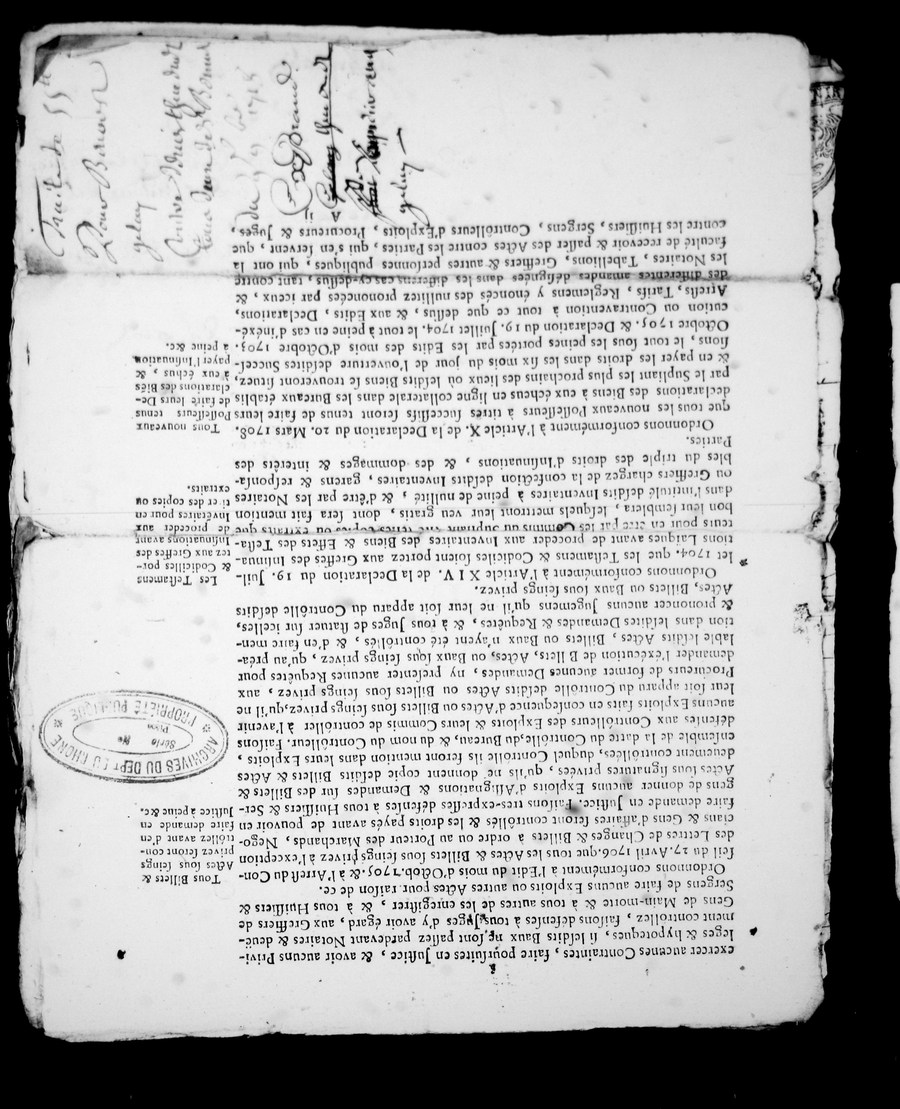 exercer aucunes Contraintes, faire poursuites en Justice, & avoir aucuns Privi-
leges & hypoteques, si lesdits Baux ne sont passez pardevant Notaires & deuë-
ment controllez, faisons défenses à tous Juges d'y avoir égard, aux Greffiers de
Gens de Main-morte & à tous autres de les enregistrer, & à tous Huissiers &
Sergens de faire aucuns Exploits ou autres Actes pour raison de ce.
Ordonnons conformément à l'Edit du mois d'Octob. 1705. & à l'Arrest du Con-
seil du 27. Avril 1706. que tous les Actes & Billets sous seings privez à l'exception
des Lettres de Changes & Billets à ordre ou au Porteur des Marchands, Nego-
cians & Gens d'affaires seront controllés & les droits payés avant de pouvoir en
faire demande en Justice. Faisons tres-expresses défenses à tous Huissiers & Ser-
gens de donner aucuns Exploits d'Assignations & Demandes sur des Billets &
Actes sous signatures privées, qu'ils ne donnent copie desdits Billets & Actes
deuëment controllées, duquel Controlle ils feront mention dans leurs Exploits,
ensemble de la datte du Controlle, du Bureau, & du nom du Controlleur. Faisons
défenses aux Controlleurs des Exploits & leurs Commis de controller à l'avenir
aucuns Exploits faits en consequence d'Actes ou Billets sous seings privez, qu'il ne
leur soit apparu du Controlle desdits Actes ou Billets sous seings privez, aux
Procureurs de former aucunes Demandes, ny presenter aucunes Requêtes pour
demander l'éxécution de Billets, Actes, ou Baux sous seings privez, qu'au préa-
lable lesdits Actes, Billets ou Baux n'ayent été controllés, & d'en faire men-
tion dans lesdites Demandes & Requêtes, & à tous Juges de statuer sur icelles,
& prononcer aucuns Jugemens qu'il ne leur soit apparu du Controlle desdits
Actes, Billets ou Baux sous seings privez.
Tous Billets &
Actes sous seings
privez seront con-
trôllez avant d'en
faire demande en
Justice à peine &c.
ARCHIVES DU DEPT DU RHONE
PROPRIÉTÉ PUBLIQUE
Série
Pièce
No
Ordonnons conformément à l'Article XIV. de la Declaration du 19. Juil-
let 1704. que les Testamens & Codiciles soient portez aux Greffes des Insinua-
tions Laïques avant de proceder aux Inventaires des Biens & Effets des Testa-
teurs pour en être par les Commis du Supliant tiré telles Copies ou extraits que
bon leur semblera, lesquels mettront leur veu gratis, dont sera fait mention
dans l'intitulé desdits Inventaires à peine de nullité, & d'être par les Notaires
ou Greffiers chargez de la confection desdits Inventaires, garens & responsa-
bles du triple des droits d'Insinuations, & des dommages & interêts des
Parties.
Les Testamens
& Codicilles por-
tez aux Greffes des
Insinuations avant
de proceder aux
Invëtaires pour en
tirer des copies ou
extraits.
Ordonnons conformément à l'Article X. de la Declaration du 20. Mars 1708.
que tous les nouveaux Possesseurs à titres successifs seront tenus de faire leurs
declarations des Biens à eux écheus en ligne collaterale dans les Bureaux établis
par le Supliant les plus prochains des lieux où lesdits Biens se trouveront situez,
& en payer les droits dans les six mois du jour de l'ouverture desdites Succes-
sions, le tout sous les peines portées par les Edits des mois d'Octobre 1703.
Octobre 1705. & Declaration du 19. Juillet 1704. le tout à peine en cas d'inéxé-
cution ou Contravention à tout ce que dessus, & aux Edits, Declarations,
Arrests, Tarifs, Reglemens y énoncés des nullitez prononcées par iceux, &
des differentes amandes désignées dans les differens cas cy-dessus, tant contre
les Notaires, Tabellions, Greffiers & autres personnes publiques, qui ont la
faculté de recevoir & passer des Actes contre les Parties, qui s'en servent, que
contre les Huissiers, Sergens, Contrôlleurs d'Exploits, Procureurs & Juges,
Tous nouveaux
Possesseurs tenus
de faire leurs De-
clarations des Biës
à eux échus, &
payer l'Insinuation
à peine &c.
A ij
Traité de 55
Pour